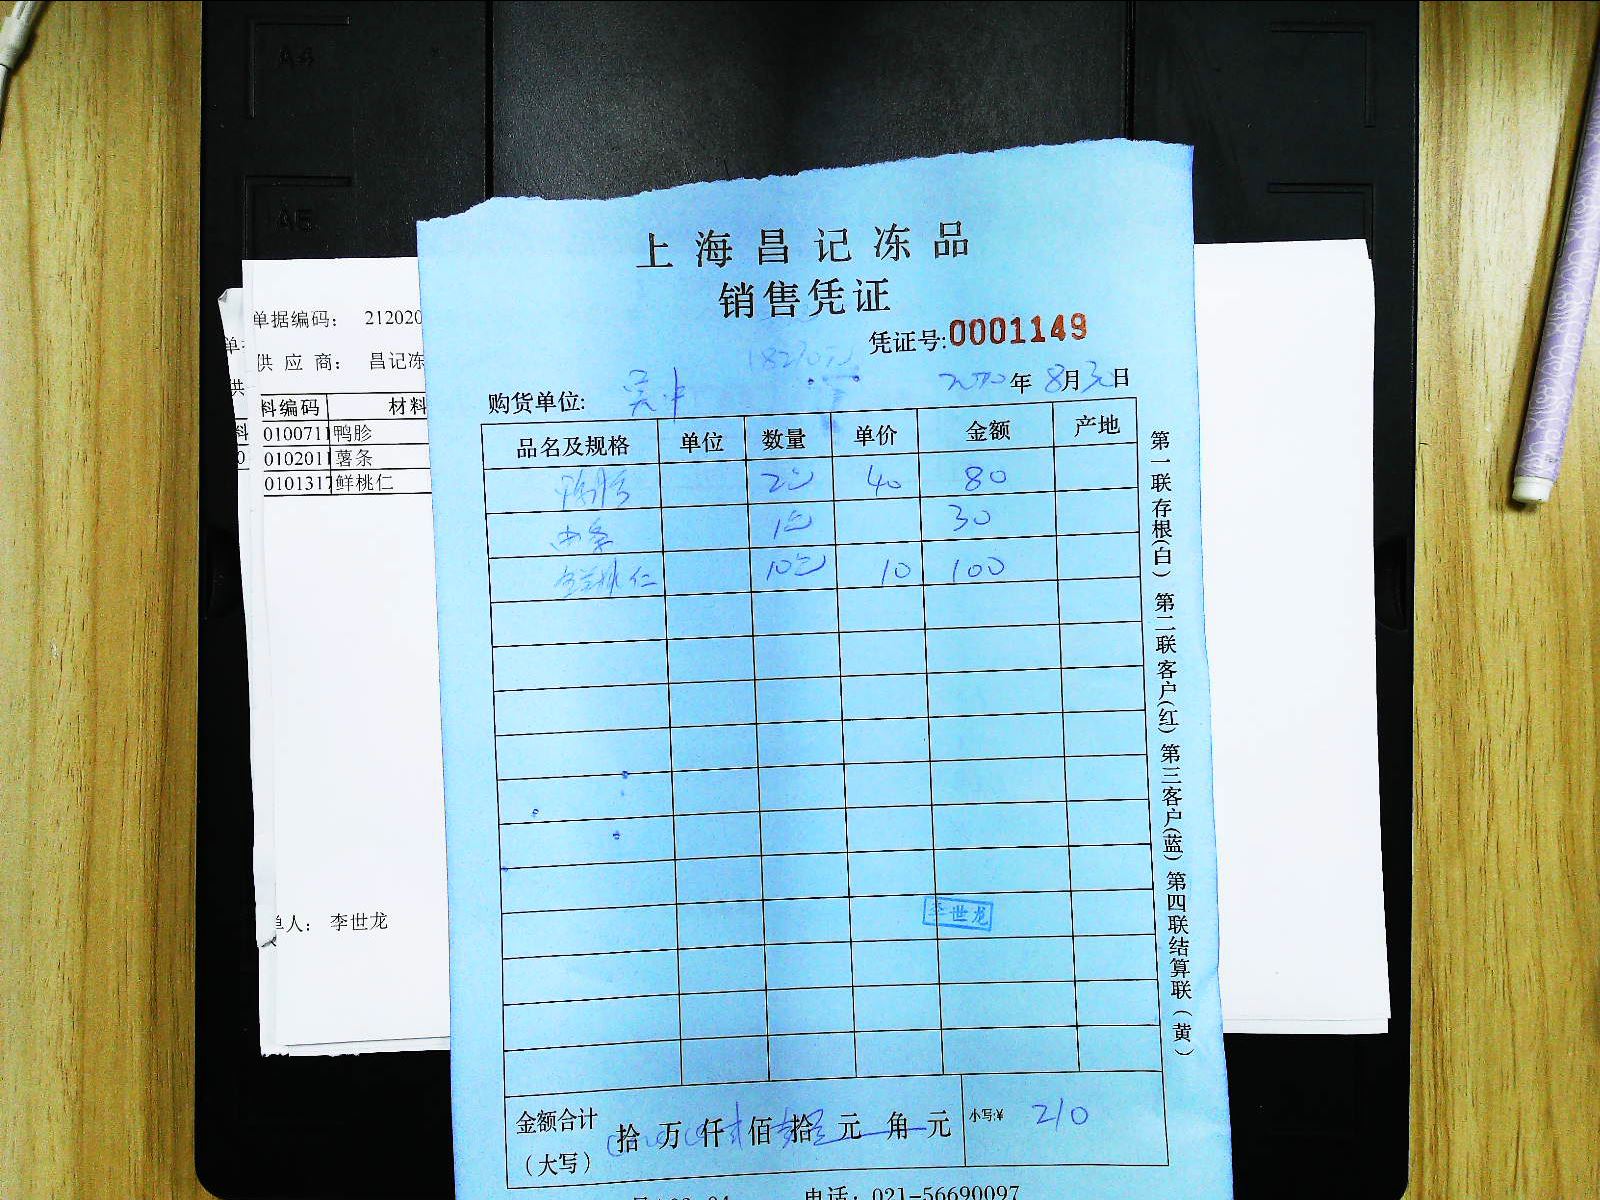 A4
A5
单据编码： 212020
供 应 商： 昌记冻
料编码 材料
0100711 鸭胗
0102011 薯条
0101317 鲜桃仁
单人： 李世龙
上海昌记冻品
销售凭证
凭证号:0001149
年8月30日
购货单位: 吴中
品名及规格 单位 数量 单价 金额 产地
鸭胗 2包 40 80
条 1包 30
鲜桃仁 10包 10 100
李世龙
金额合计 拾 万 仟 佰 拾 元 角 元 小写:¥ 210
（大写）
电话：021-56690097
第一联存根(白) 第二联客户(红) 第三客户(蓝) 第四联结算联(黄)